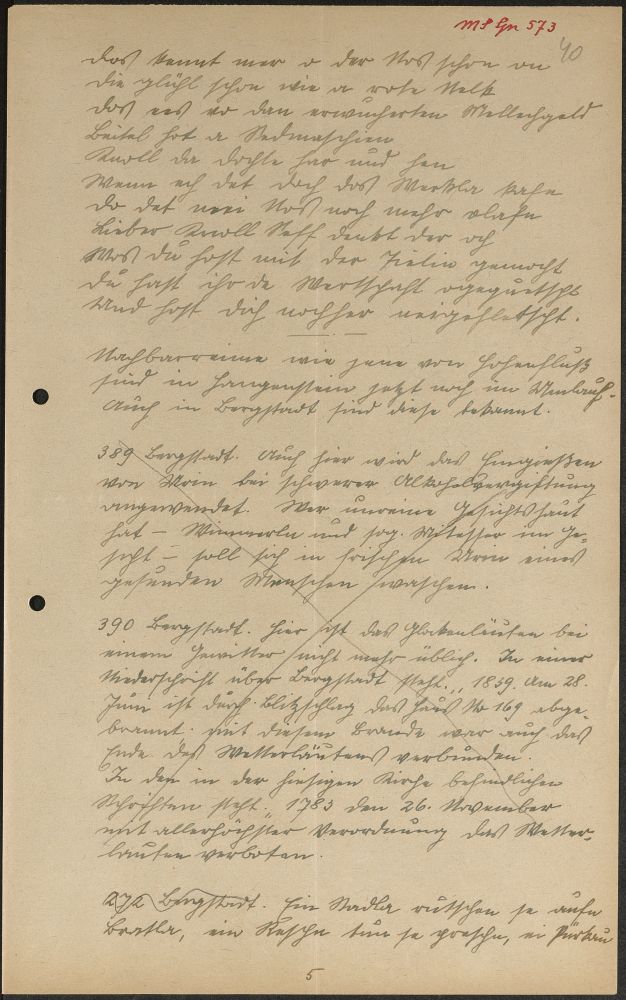 MS Gn 573
40
das kennt mer o der Nos schon on
die glühl schon wie a rote Nelk
dos ees vo dan erwucherten Mellechgeld
Beitel hot a Sedmaschien
Knoll da dochte har und hen
Wenn ech det doch dos Werkla kafn
do det mei Nos noch mehr olafn
Lieber Knoll Seff denkt der och
Wos du host mit der gemocht
du hast ihr de Wertschaft ogequetscht
Und host dich nochher neigefletscht.
Nachbarreime wie jene von Hohenfluß
sind in Hangenstein jetzt noch im Umlauf.
Auch in Bergstadt sind diese bekannt.
389 Bergstadt. Auch hier wird das Hingießen
von Urin bei schwerer Alkoholvergiftung
angewendet. Wer unreine Gesichtshaut
hat – Wimmerln und sog. Mitesser im Ge-
sicht – soll sich in frischen Urin eines
gesunden Menschen waschen.
390 Bergstadt. Hier ist das Glockenläuten bei
einem Gewitter nicht mehr üblich. In einer
Niederschrift über Bergstadt steht: „1859. Am 28.
Juni ist durch Blitzschlag das Haus No 169 abge-
brannt. Mit diesem Brande war auch das
Ende des Wetterläutens verbunden.
In den in der hiesigen Kirche befindlichen
Schriften steht: „1783 den 26. November
mit allerhöchster Verordnung das Wetter-
läuten verboten.
272 Bergstadt. Ein Stadla rutschen se aufn
Bratla, ein tun se preschn, ei
5